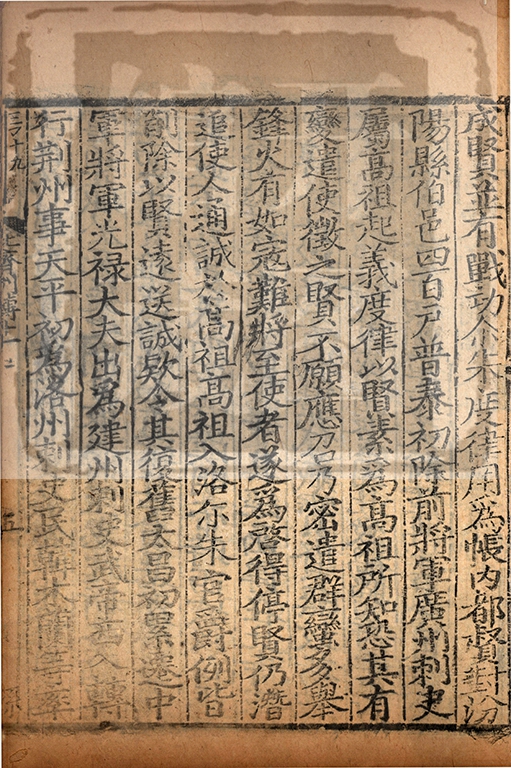 成賢並有戰功尒朱度律用為帳內都督封汾
陽縣伯邑四百戶普泰初除前將軍廣州刺史
屬高祖起義度律以賢素為高祖所知恐其有
變遣使徵之賢不願應召乃密遣群蠻多舉
鋒火有如寇難將至使者遂為啓得停賢仍潛
追使人通誠於高祖高祖入洛尔朱官爵例皆
削除以賢遠送誠欵令其復舊太昌初累遷中
軍將軍光禄大夫出為建州刺史武帝西入轉
行荆州事天平初為洛州刺史民韓木蘭等率
三百十九
五